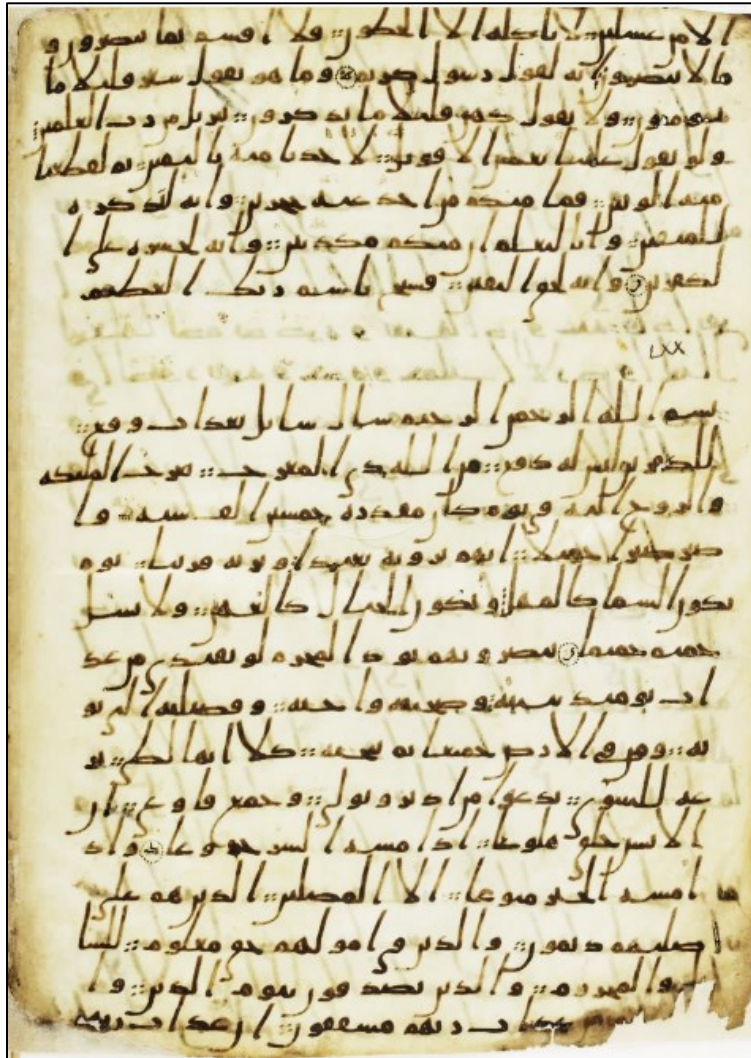 الا من غسلين لا ياكله الا الخطون فلا اقسم بما تبصرون و
ما لا تبصرون انه لقول رسول كريم وما هو بقول شعر قليلا ما
تومنون ولا بقول كهن قليلا ما تذكرون تنزيل من رب العلمين
ولو تقول علينا بعض الاقويل لاخذنا منه باليمين ثم لقطعنا
منه الوتين فما منكم من احد عنه حجزين وانه لتذكرة
للمتقين وانا لنعلم ان منكم مكذبين وانه لحسرة على ا
لكفرين وانه لحق اليقين فسبح باسم ربك العظيم
LXX
بسم الله الرحمن الرحيم سال سايل بعذاب وقع
للكفرين ليس له دافع من الله ذي المعرج تعرج الملئكة
والروح اليه في يوم كان مقدره خمسين الف سنة فا
صبر صبرا جميلا انهم يرونه بعيدا ونريه قريبا يوم
تكون السما كالمهل وتكون الجبال كالعهن ولا يسل
حميم حميما يبصرونهم يود المجرم لو يفتدي من عذ
اب يومئذ ببنيه وصحبته واخيه وفصيلته التي تو
يه ومن في الارض جميعا ثم ينجيه كلا انها لظى نز
عة للشوى تدعوا من ادبر وتولى وجمع فاوعى ان
الانسن خلق هلوعا اذا مسه الشر جزوعا واذ
ا مسه الخير منوعا الا المصلين الذين هم على
صلتهم دايمون والذين في امولهم حق معلوم للسا
يل والمحروم والذين يصدقون بيوم الدين وا
عذاب ربهم مشفقون ان عذاب ربهم